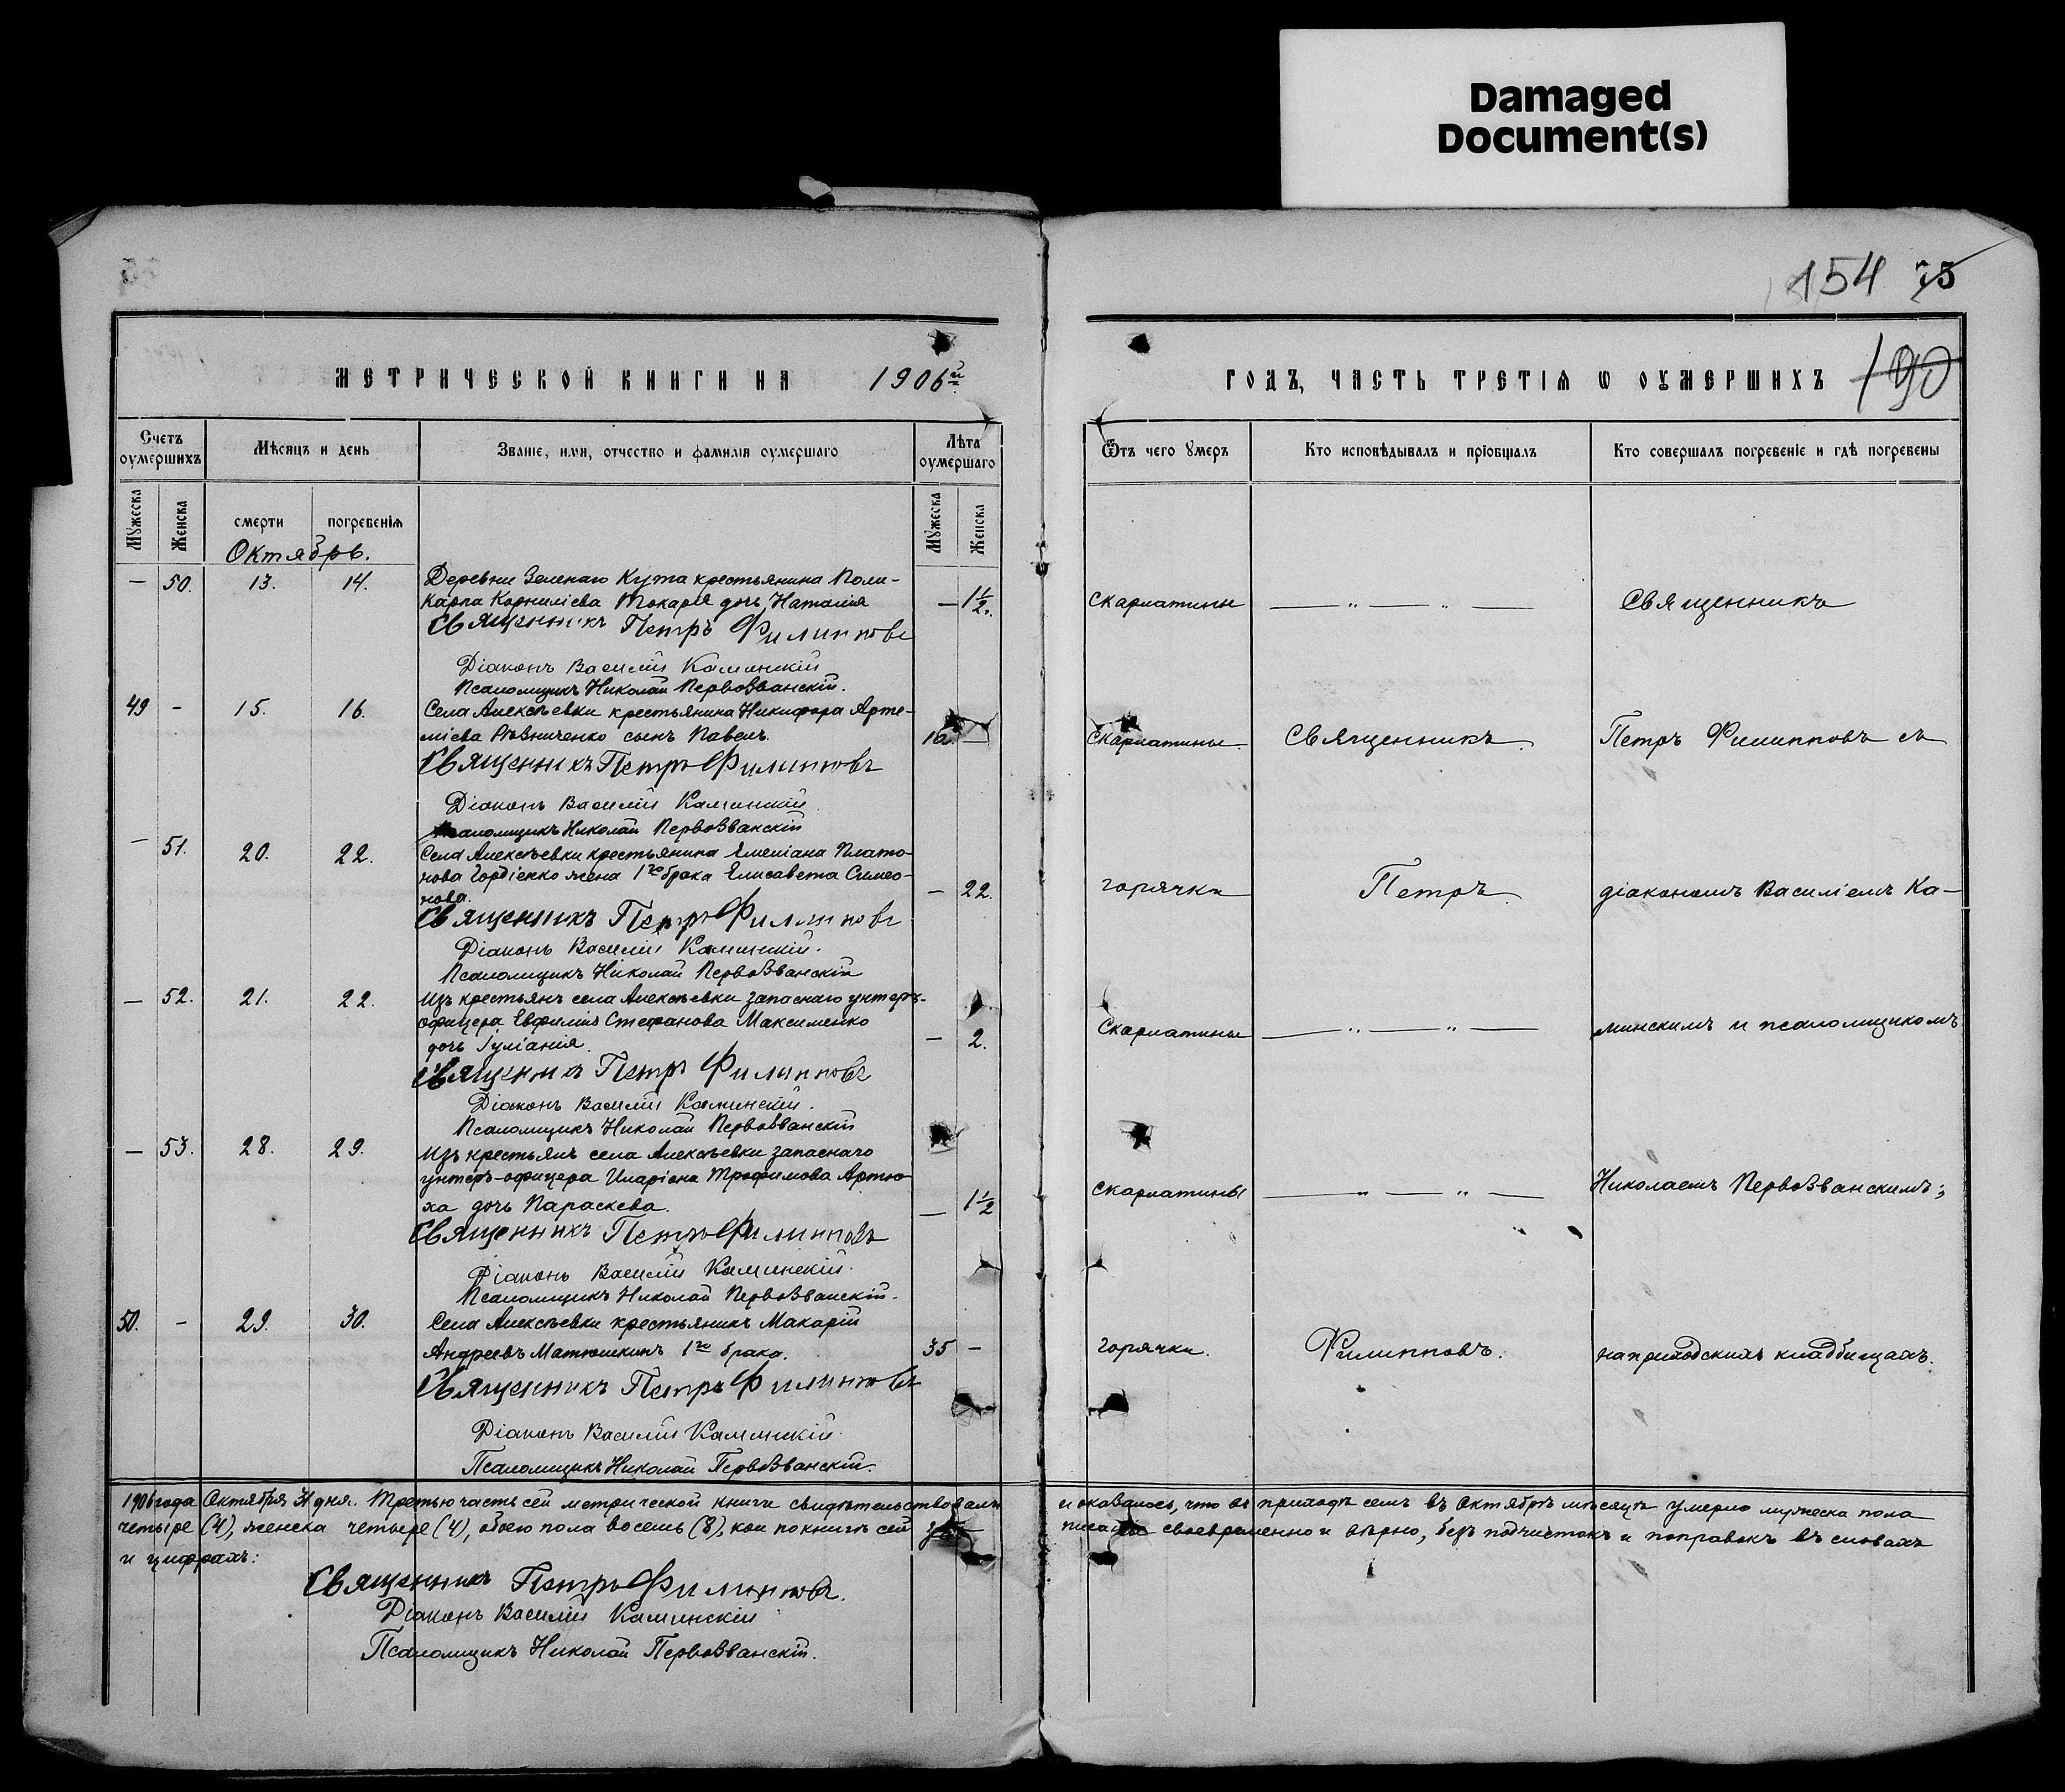 Damaged
Document(s)
154 75
МЕТРИЧЕСКОЙ КНИГИ НА 1906й
Счетъ оумершихъ
Мѣсяцъ и день
Званіе, имя, отчество и фамилія оумершаго
Лѣта оумершаго
Мужеска
Женска
смерти
погребенія
Мужеска
Женска
Октябрь.
— 50. 13. 14. Деревни Зеленаго Кута крестьянина Поли-
карпа Корниліева Токаря дочь Наталія — 1½.
Священникъ Петръ Филипповъ
Діаконъ Василій Каминскій
Псаломщикъ Николай Первозванскій.
49 - 15. 16. Села Алексѣевки крестьянина Никифора Арте-
міева Рѣзниченко сынъ Павелъ. —
Священникъ Петръ Филипповъ
Діаконъ Василій Каминскій.
Псаломщикъ Николай Первозванскій
— 51. 20. 22. Села Алексѣевки крестьянина Емеліана Плато-
нова Гордіенко жена 1го брака Елисавета Симео-
нова. — 22.
Священникъ Петръ Филипповъ
Діаконъ Василій Каминскій.
Псаломщикъ Николай Первозванскій
— 52. 21. 22. Изъ крестьянъ села Алексѣевки запаснаго унтеръ-
офицера Евфимія Стефанова Максименко
дочь Іуліанія. — 2.
Священникъ Петръ Филипповъ
Діаконъ Василій Каминскій.
Псаломщикъ Николай Первозванскій
— 53. 28. 29. Изъ крестьянъ села Алексѣевки запаснаго
унтеръ-офицера Иларіона Трофимова Артю-
ха дочь Параскева. — 1½
Священникъ Петръ Филипповъ
Діаконъ Василій Каминскій.
Псаломщикъ Николай Первозванскій.
50. - 29. 30. Села Алексѣевки крестьянинъ Макарій
Андреевъ Матюшкинъ 1го брака. 35 -
Священникъ Петръ Филипповъ
Діаконъ Василій Каминскій.
Псаломщикъ Николай Первозванскій.
1906 года Октября 31 дня. Третью часть сей метрической книги свидѣтельствовали
четыре (4), женска четыре (4), обоего пола восемь (8), кои по книгѣ сей
и цифрахъ:
Священникъ Петръ Филипповъ.
Діаконъ Василій Каминскій
Псаломщикъ Николай Первозванскій.
ГОДЪ, ЧАСТЬ ТРЕТІЯ Ѡ ОУМЕРШИХЪ 190
Ѿтъ чего умеръ
Кто исповѣдывалъ и пріобщалъ
Кто совершалъ погребеніе и гдѣ погребены
скарлатины — „ — „ — Священникъ
скарлатины. Священникъ. Петръ Филипповъ съ
горячки Петръ. діакономъ Василіемъ Ка-
скарлатины — „ — „ — минскимъ и псаломщикомъ
скарлатины — „ — „ — Николаемъ Первозванскимъ;
горячки. Филипповъ. на приходскихъ кладбищахъ.
и оказалось, что въ приходѣ семъ въ Октябрѣ мѣсяцѣ умерло мужеска пола
писаны своевременно и вѣрно, безъ подчистокъ и поправокъ въ словахъ